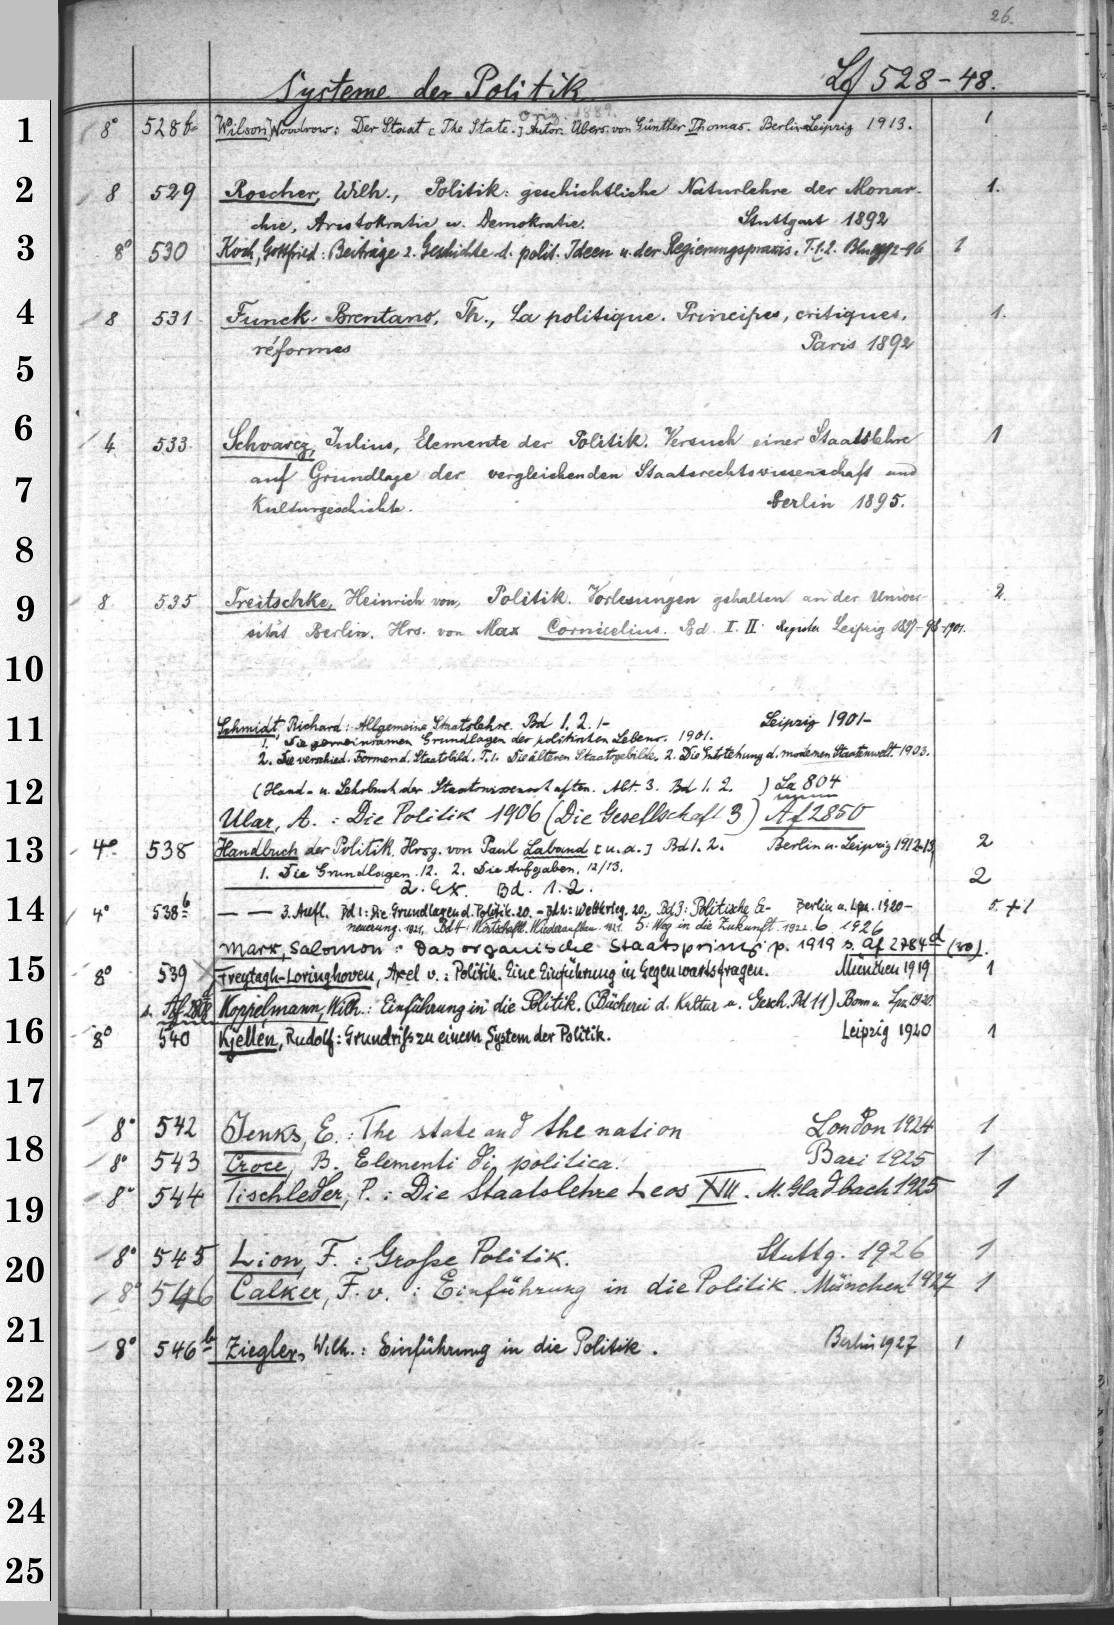 26.
Systeme der Politik. Lf 528-48.
Orig. 1889.
1 8° 528b Wilson, Woodrow: Der Staat [The State.] Autor. Übers. von Günther Thomas. Berlin Leipzig 1913. 1
2 8 529 Roscher, Wilh., Politik: geschichtliche Naturlehre der Monar-1.
chie, Aristokratie u. Demokratie. Stuttgart 1892
3 8° 530 Koch, Gottfried: Beiträge z. Geschichte d. polit. Ideen u. der Regierungspraxis. T. 1.2. Bln 1892-96 1
4 8 531 Funck-Brentano, Th., La politique. Principes, critiques, 1.
réformes Paris 1892
5
6 4 533 Schvarcz, Julius, Elemente der Politik. Versuch einer Staatslehre 1
7 auf Grundlage der vergleichenden Staatsrechtswissenschaft und
Kulturgeschichte. Berlin 1895.
8
9 8 535 Treitschke, Heinrich von, Politik. Vorlesungen gehalten an der Univer-2.
sität Berlin. Hrs. von Max Cornicelius. Bd I. II Register Leipzig 1897-98-1901.
10
11 Schmidt, Richard: Allgemeine Staatslehre. Bd 1. 2. 1- Leipzig 1901-
1. Die gemeinsamen Grundlagen der politischen Lebens. 1901.
2. Die verschied. Formen d. Staatsbild. T. 1. Die älteren Staatsgebilde, 2. Die Entstehung d. modernen Staatenwelt. 1903.
12 (Hand- u. Lehrbuch der Staatswissenschaften. Abt. 3. Bd 1. 2. ) La 804
Ular, A. : Die Politik 1906 (Die Gesellschaft 3) Af 2850
13 4° 538 Handbuch der Politik. Hrsg. von Paul Laband [u. a.] Bd 1. 2. Berlin u. Leipzig 1912-13 2
1. Die Grundlagen. 12. 2. Die Aufgaben. 12/13.
2. Ex. Bd. 1. 2. 2
14 4° 538b — — 3. Aufl. Bd 1: Die Grundlagen d. Politik. 20. - Bd 2: Weltkrieg. 20., Bd 3: Politische Er- Berlin u. Lpz. 1920- 5+1
neuerung. 1921, Bd 4: Wirtschaftl. Wiederaufbau. 1921. 5: Weg in die Zukunft. 1922. 6. 1926
Marx, Salomon : Das organische Staatsprinzip. 1919 s. Af 2784d (80).
15 8° 539 Freytagh-Loringhoven, Axel v.: Politik. Eine Einführung in Gegenwartsfragen. München 1919 1
s. Af Koppelmann, Wilh.: Einführung in die Politik. (Bücherei d. Kultur u. Gesch. Bd 11) Bonn u. Lpz. 1920.
16 8° 540 Kjellén, Rudolf: Grundriß zu einem System der Politik. Leipzig 1920 1
17
8° 542 Jenks, E. : The state and the nation London 1924 1
18 8° 543 Croce, B. Elementi di politica. Bari 1925 1
19 8° 544 Tischleder, P. : Die Staatslehre Leos XIII. M. Gladbach 1925 1
20 8° 545 Lion, F. : Große Politik. Stuttg. 1926 1
8° 546 Calker, F. v. : Einführung in die Politik. München 1927 1
21 8° 546b Ziegler, Wilh. : Einführung in die Politik. Berlin 1927 1
22
23
24
25